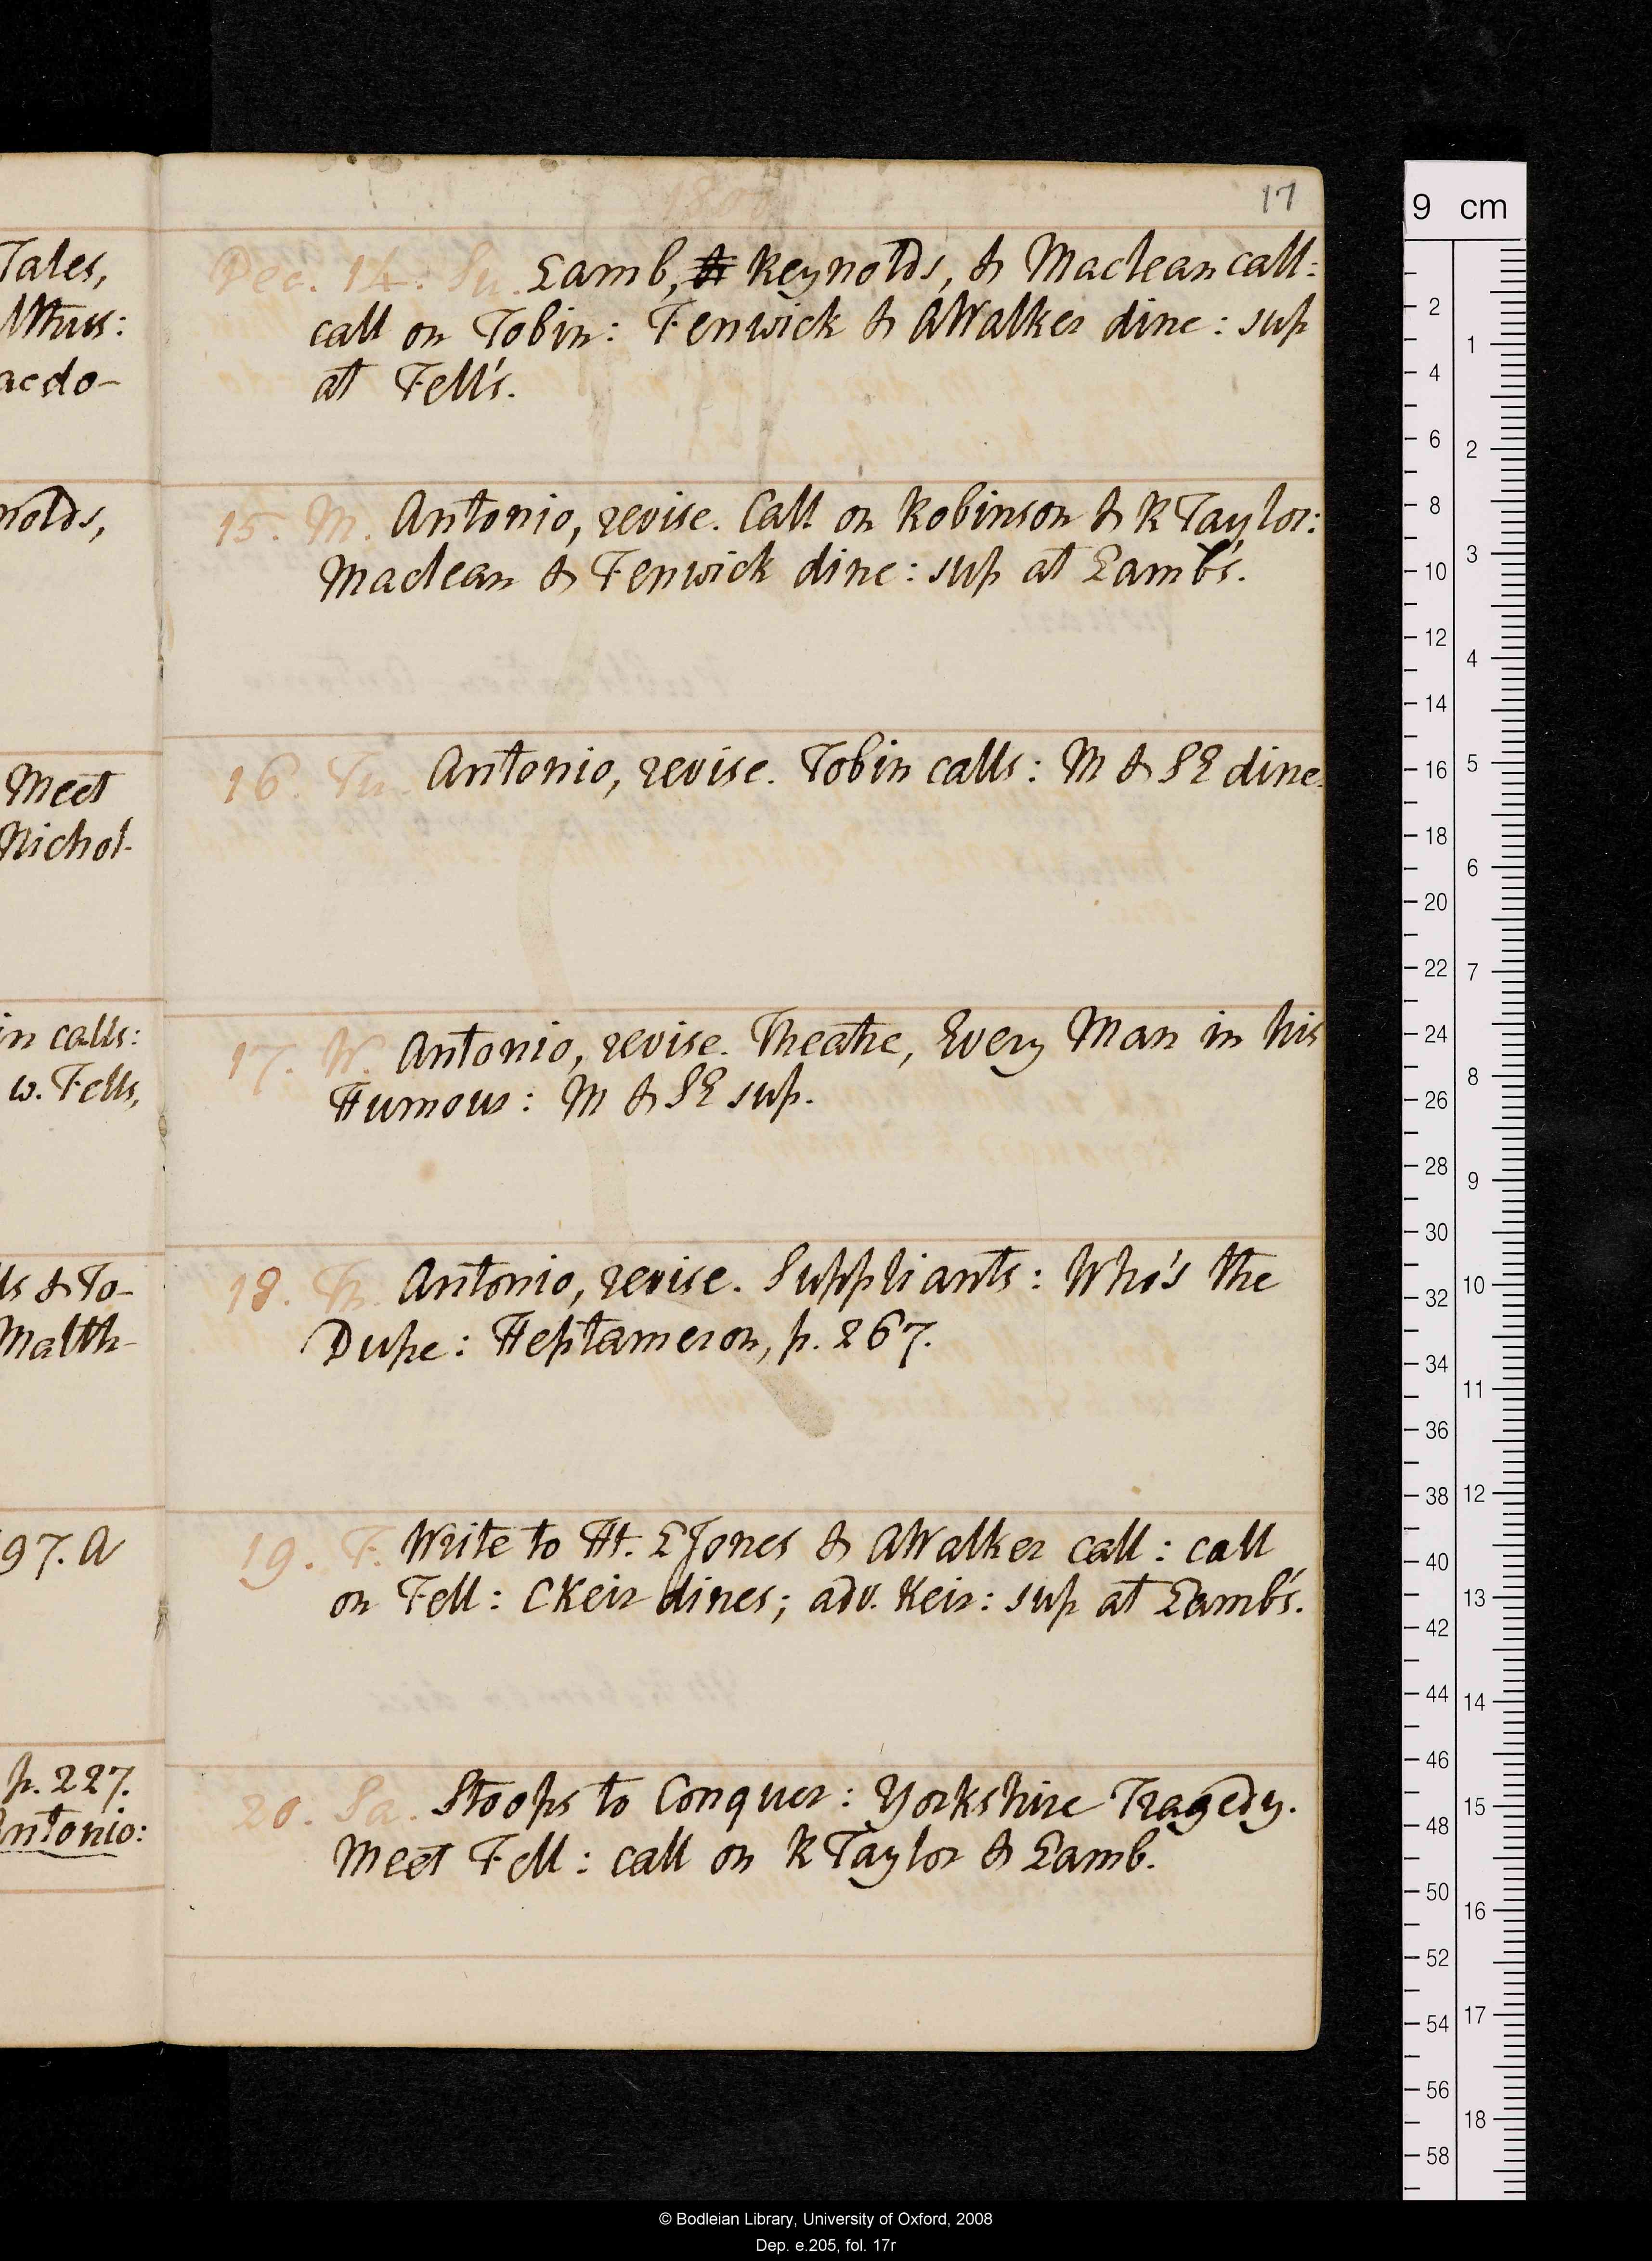 Tales,
lthus:
acdo-
nolds,
Meet
Nichol-
in calls:
w. Fells,
ls & To-
Malth-
97. A
p. 227.
Antonio:
1800
17
Dec. 14. Su. Lamb, & Reynolds, & Maclean call:
call on Tobin: Fenwick & AWalker dine: sup
at Fell's.
15. M. Antonio, revise. Call on Robinson & R Taylor:
Maclean & Fenwick dine: sup at Lamb's.
16. Tu. Antonio, revise. Tobin calls: M & SE dine.
17. W. Antonio, revise. Theatre, Every Man in his
Humour: M & SE sup.
18. Th. Antonio, revise. Suppliants: Who's the
Dupe: Heptameron, p. 267.
19. F. Write to Ht. LJones & AWalker call: call
on Fell: CKeir dines; adv. Keir: sup at Lamb's.
20. Sa. Stoops to Conquer: Yorkshire Tragedy.
Meet Fell: call on R Taylor & Lamb.
9 cm
2
4
6
8
10
12
14
16
18
20
22
24
26
28
30
32
34
36
38
40
42
44
46
48
50
52
54
56
58
1
2
3
4
5
6
7
8
9
10
11
12
13
14
15
16
17
18
© Bodleian Library, University of Oxford, 2008
Dep. e.205, fol. 17r